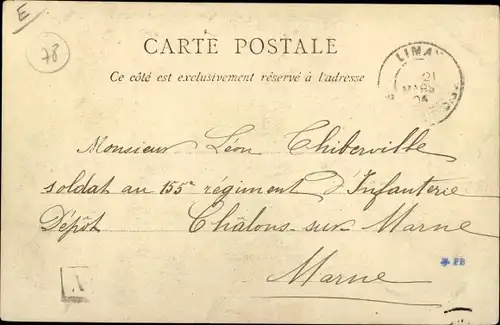 E
78
CARTE POSTALE
Ce côté est exclusivement réservé à l'adresse
LIMAY
21
MARS
04
Monsieur Léon Chiberville
soldat au 155e régiment d'Infanterie
Dépôt Châlons-sur-Marne
Marne
PB